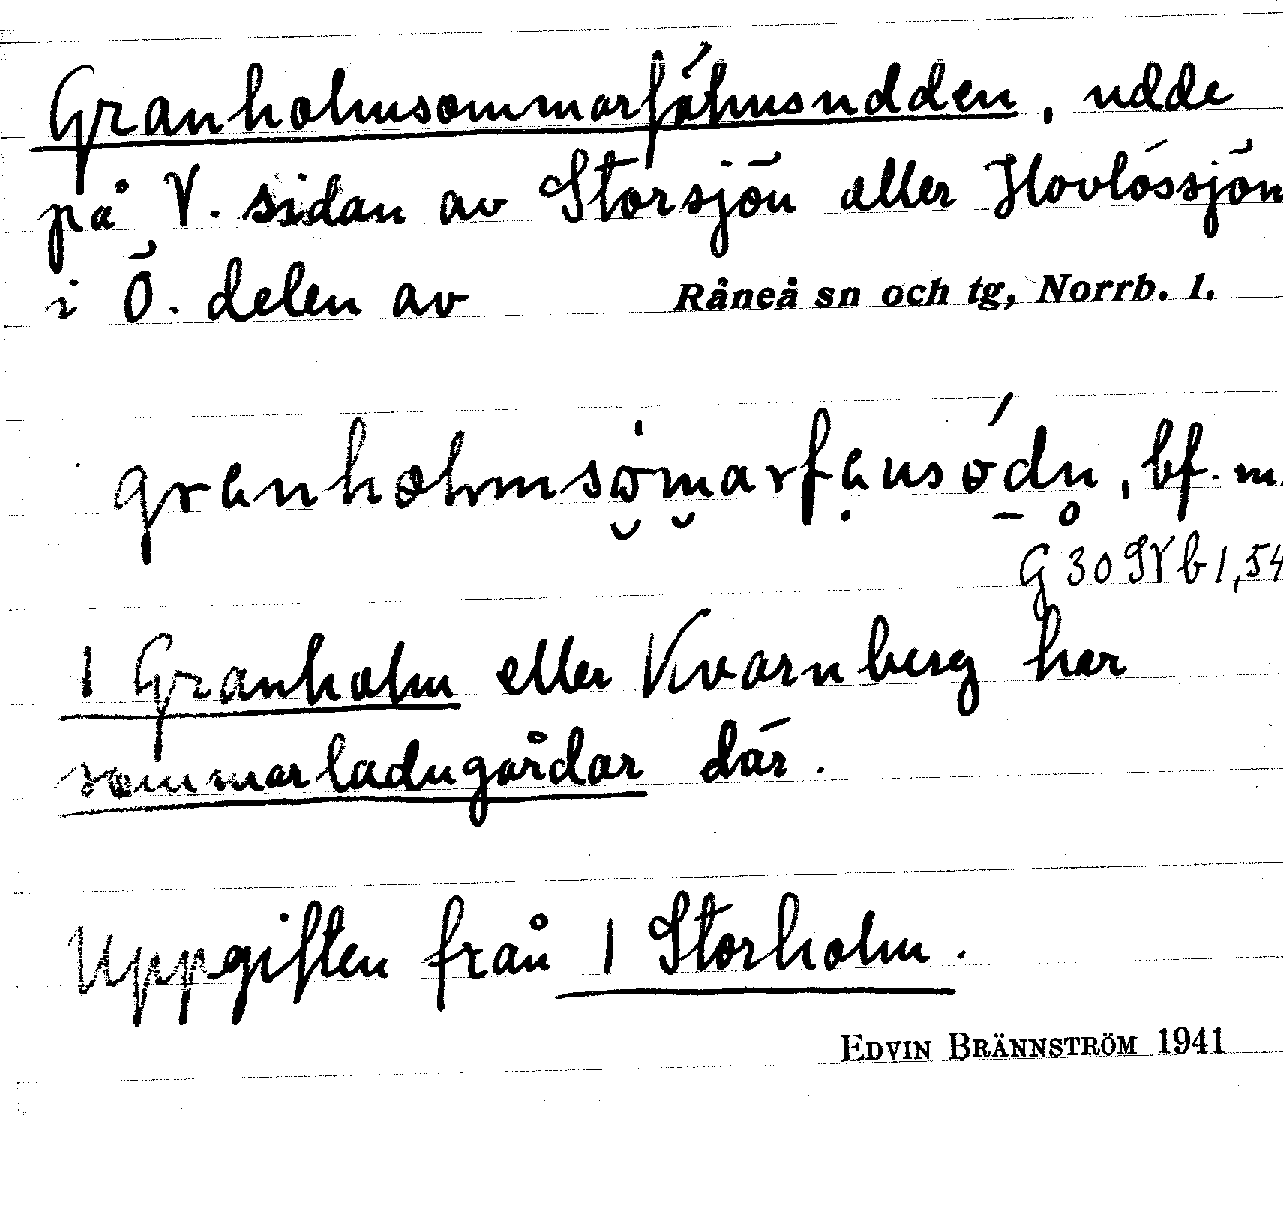 Granholmsommarfähusudden, udde
på V. sidan av Storsjön eller Hovlössjön
i Ö. delen av Råneå sn och tg, Norrb. l.
bf. m.
G 30 SV b 1,54
1 Granholm eller Kvarnberg har
sommarladugårdar där.
Uppgiften från 1 Storholm.
EDVIN BRÄNNSTRÖM 1941